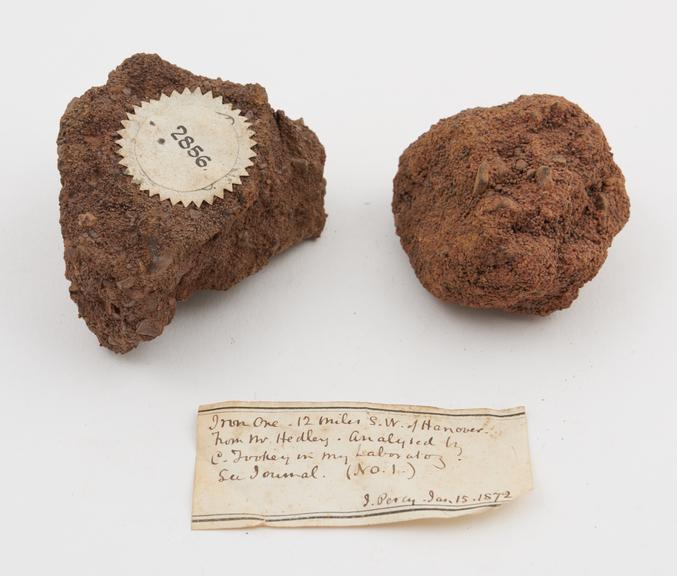 2856.
Iron Ore. 12 miles S.W. of Hanover.
From Mr. Hedley. Analysed by
C. Tookey in my Laboratory.
See Journal. (No. 1.)
J. Percy. Jan. 15. 1872